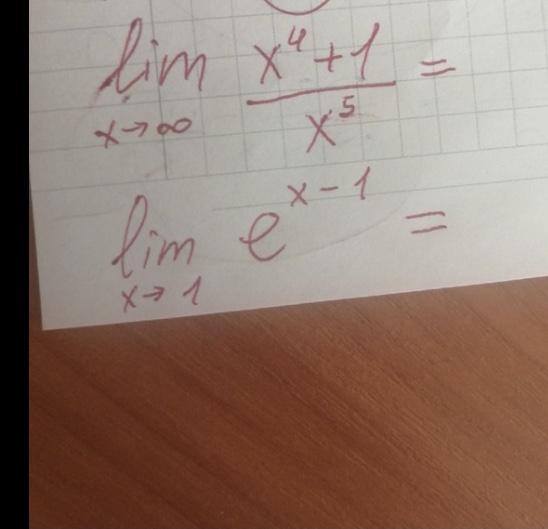 lim x→∞ (x⁴+1)/x⁵ =
lim x→1 e^(x-1) =